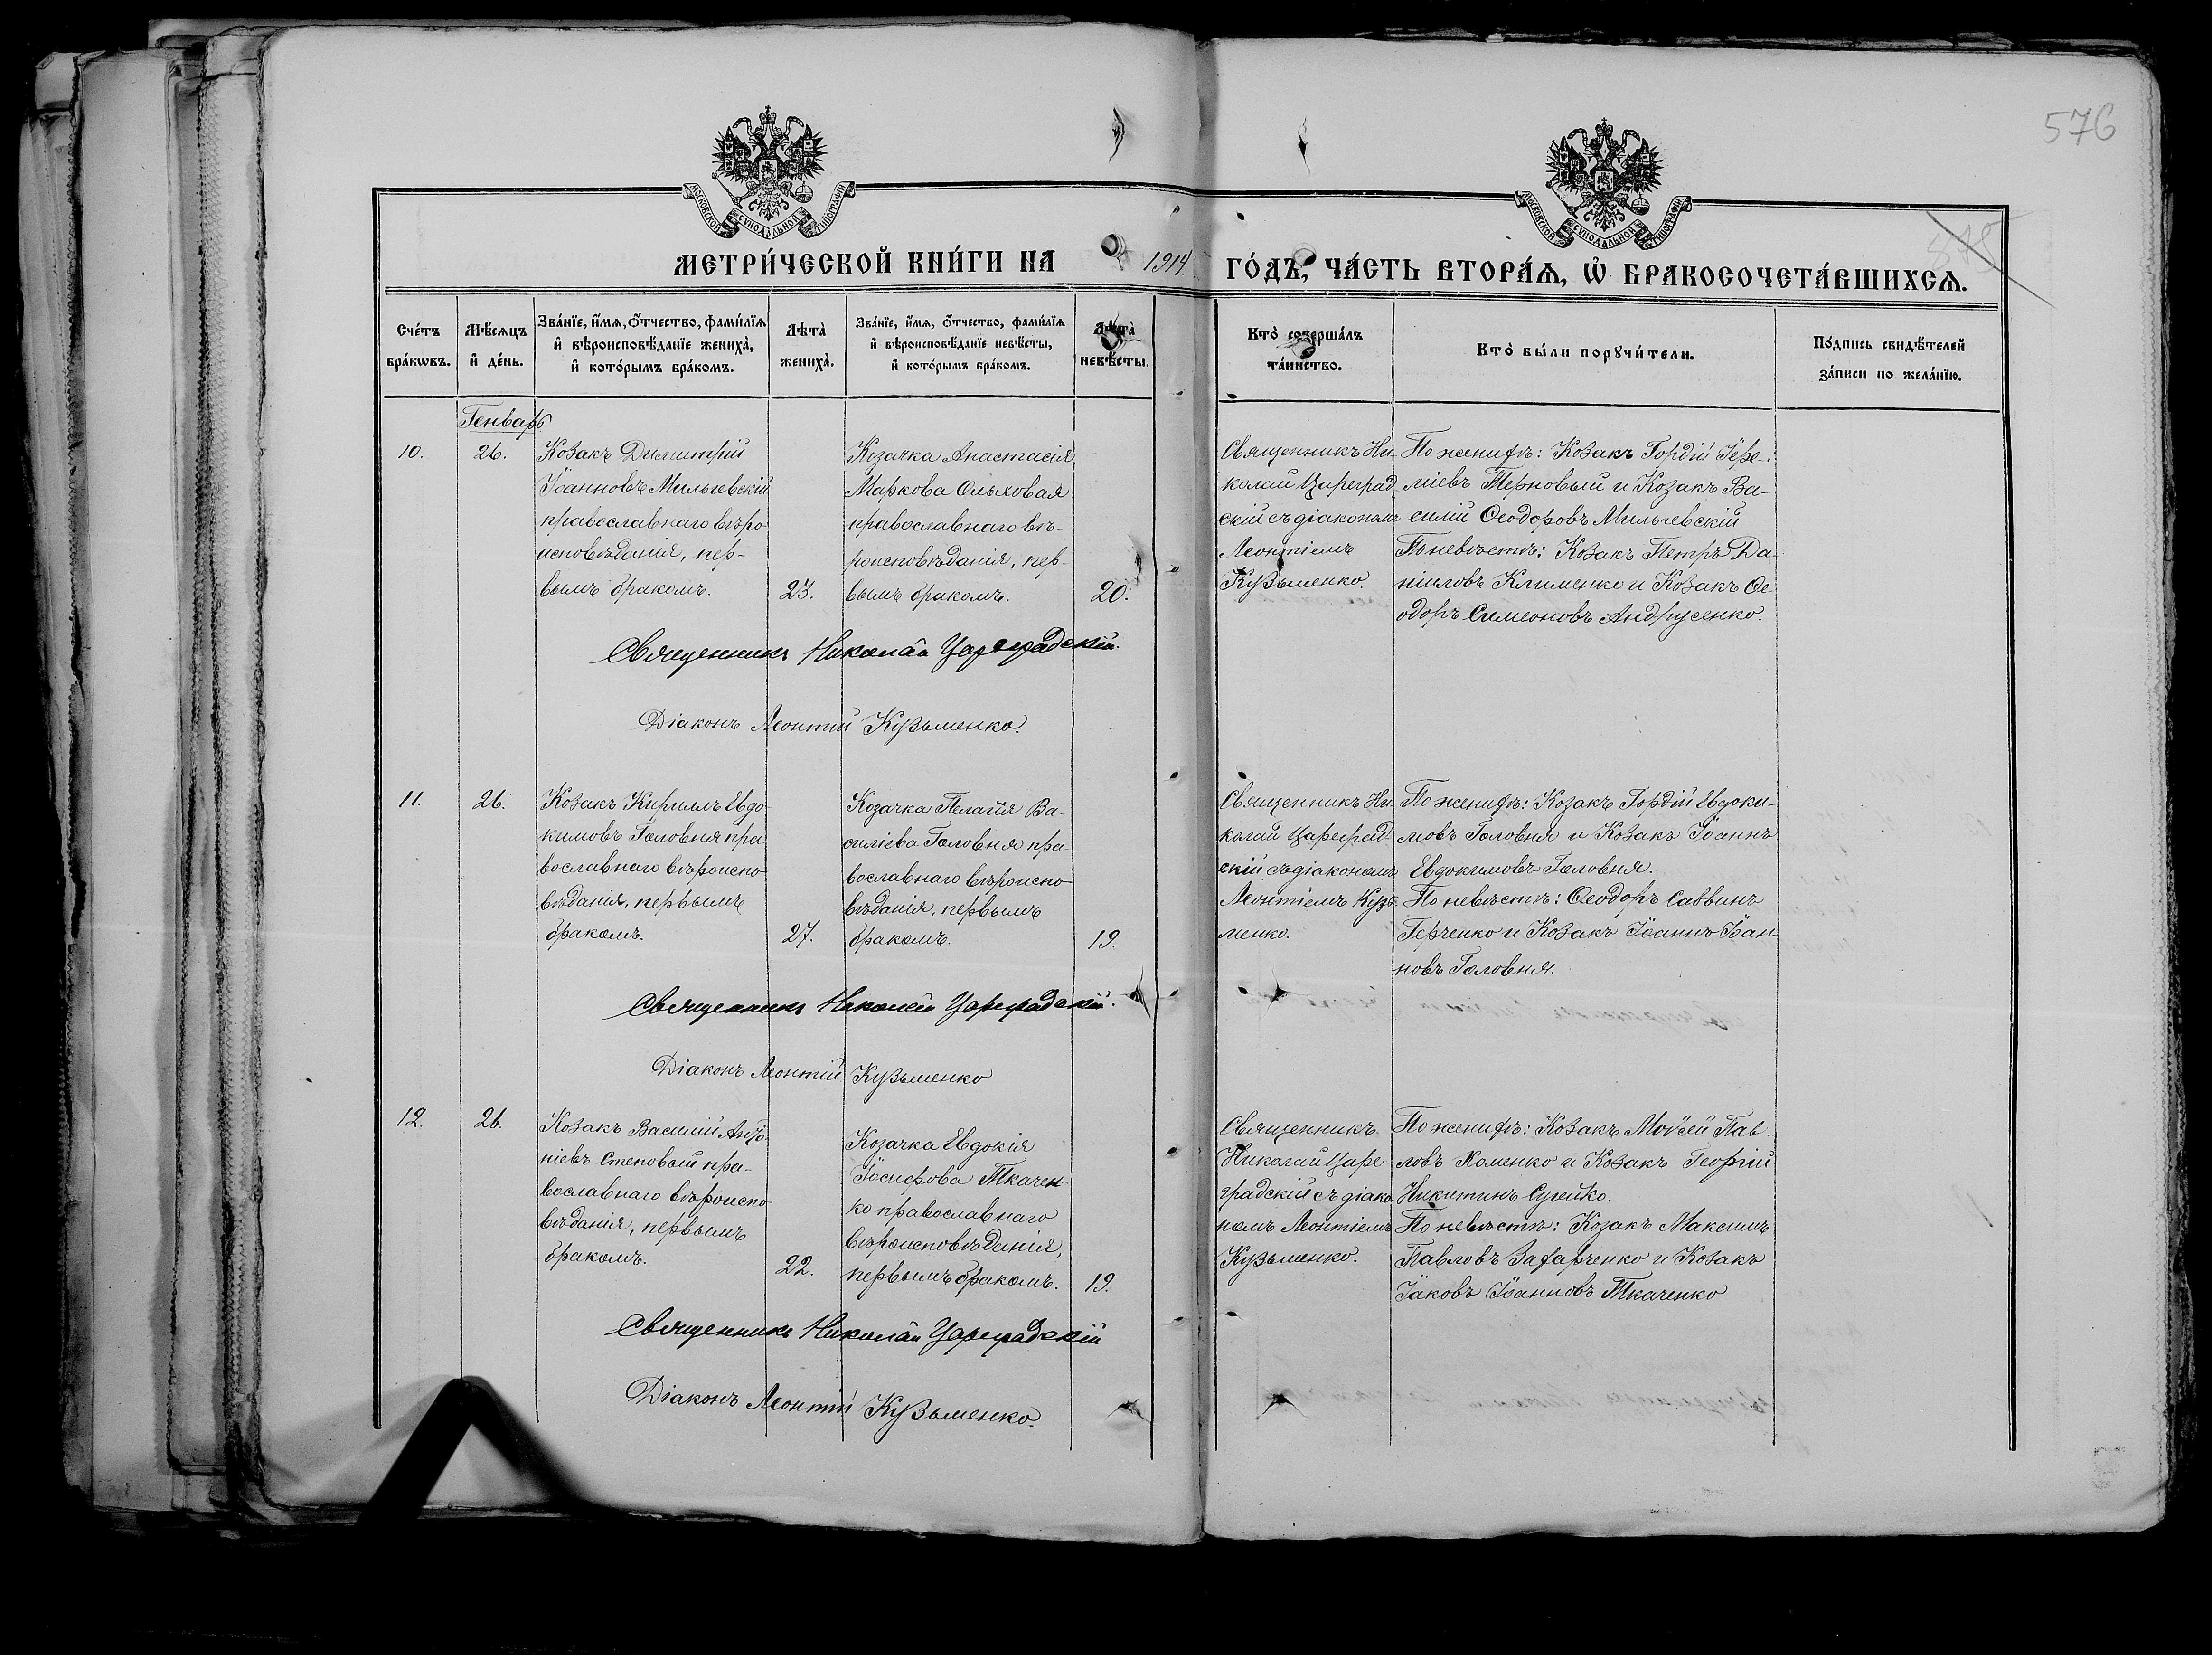 576
МОСКОВСКОЙ СУНОДАЛЬНОЙ ТИПОГРАФІИ
МОСКОВСКОЙ СУНОДАЛЬНОЙ ТИПОГРАФІИ
МЕТРИ́ЧЕСКОЙ КНИ́ГИ НА 1914 ГО́ДЪ, ЧА́СТЬ ВТОРА́Ѧ, Ѽ БРАКОСОЧЕТА́ВШИХСѦ.
Сче́тъ бра́кѡвъ.
Мѣ́сѧцъ и҆ де́нь.
Зва́нїе, и҆́мѧ, ѻ҆́тчество, фами́лїѧ
и҆ вѣроисповѣ́данїе жениха̀,
и҆ кото́рымъ бра́комъ.
Лѣта̀ жениха̀.
Зва́нїе, и҆́мѧ, ѻ҆́тчество, фами́лїѧ
и҆ вѣроисповѣ́данїе невѣ́сты,
и҆ кото́рымъ бра́комъ.
Лѣта̀ невѣ́сты.
Кто̀ соверша́лъ
та́инство.
Кто̀ бы́ли порꙋчи́тели.
По́дпись свидѣ́телей
за́писи по жела́нїю.
Генварь
10.
26.
Козакъ Димитрій
Іоанновъ Мильчевскій
православнаго вѣро-
исповѣданія, пер-
вымъ бракомъ.
23.
Козачка Анастасія
Маркова Ольховая
православнаго вѣ-
роисповѣданія, пер-
вымъ бракомъ.
20.
Священникъ Ни-
колай Цареград-
скій съ діакономъ
Леонтіемъ
Кузьменко.
По женихѣ: Козакъ Гордій Іере-
міевъ Терновый и Козакъ Ва-
силій Ѳеодоровъ Мильчевскій
По невѣстѣ: Козакъ Петръ Да-
ніиловъ Клименко и Козакъ Ѳе-
одоръ Симеоновъ Андрусенко.
Священникъ Николай Цареградскій.
Діаконъ Леонтій Кузьменко.
11.
26.
Козакъ Кириллъ Евдо-
кимовъ Головня пра-
вославнаго вѣроиспо-
вѣданія, первымъ
бракомъ.
27.
Козачка Пелагія Ва-
силіева Головня пра-
вославнаго вѣроиспо-
вѣданія, первымъ
бракомъ.
19.
Священникъ Ни-
колай Цареград-
скій съ діакономъ
Леонтіемъ Кузь-
менко.
По женихѣ: Козакъ Гордій Евдоки-
мовъ Головня и Козакъ Іоаннъ
Евдокимовъ Головня.
По невѣстѣ: Ѳеодоръ Саввинъ
Герченко и Козакъ Іоаннъ Іоан-
новъ Головня.
Священникъ Николай Цареградскій.
Діаконъ Леонтій Кузьменко
12.
26.
Козакъ Василій
ніевъ Степовый пра-
вославнаго вѣроиспо-
вѣданія, первымъ
бракомъ.
22.
Козачка Евдокія
Іосифова Ткачен-
ко православнаго
вѣроисповѣданія,
первымъ бракомъ.
19.
Священникъ
Николай Царе-
градскій съ діако-
номъ Леонтіемъ
Кузьменко.
По женихѣ: Козакъ Моѵсей Пав-
ловъ Хоменко и Козакъ Георгій
Никитинъ
По невѣстѣ: Козакъ Максимъ
Павловъ Захарченко и Козакъ
Іаковъ Іоанновъ Ткаченко
Священникъ Николай Цареградскій
Діаконъ Леонтій Кузьменко.